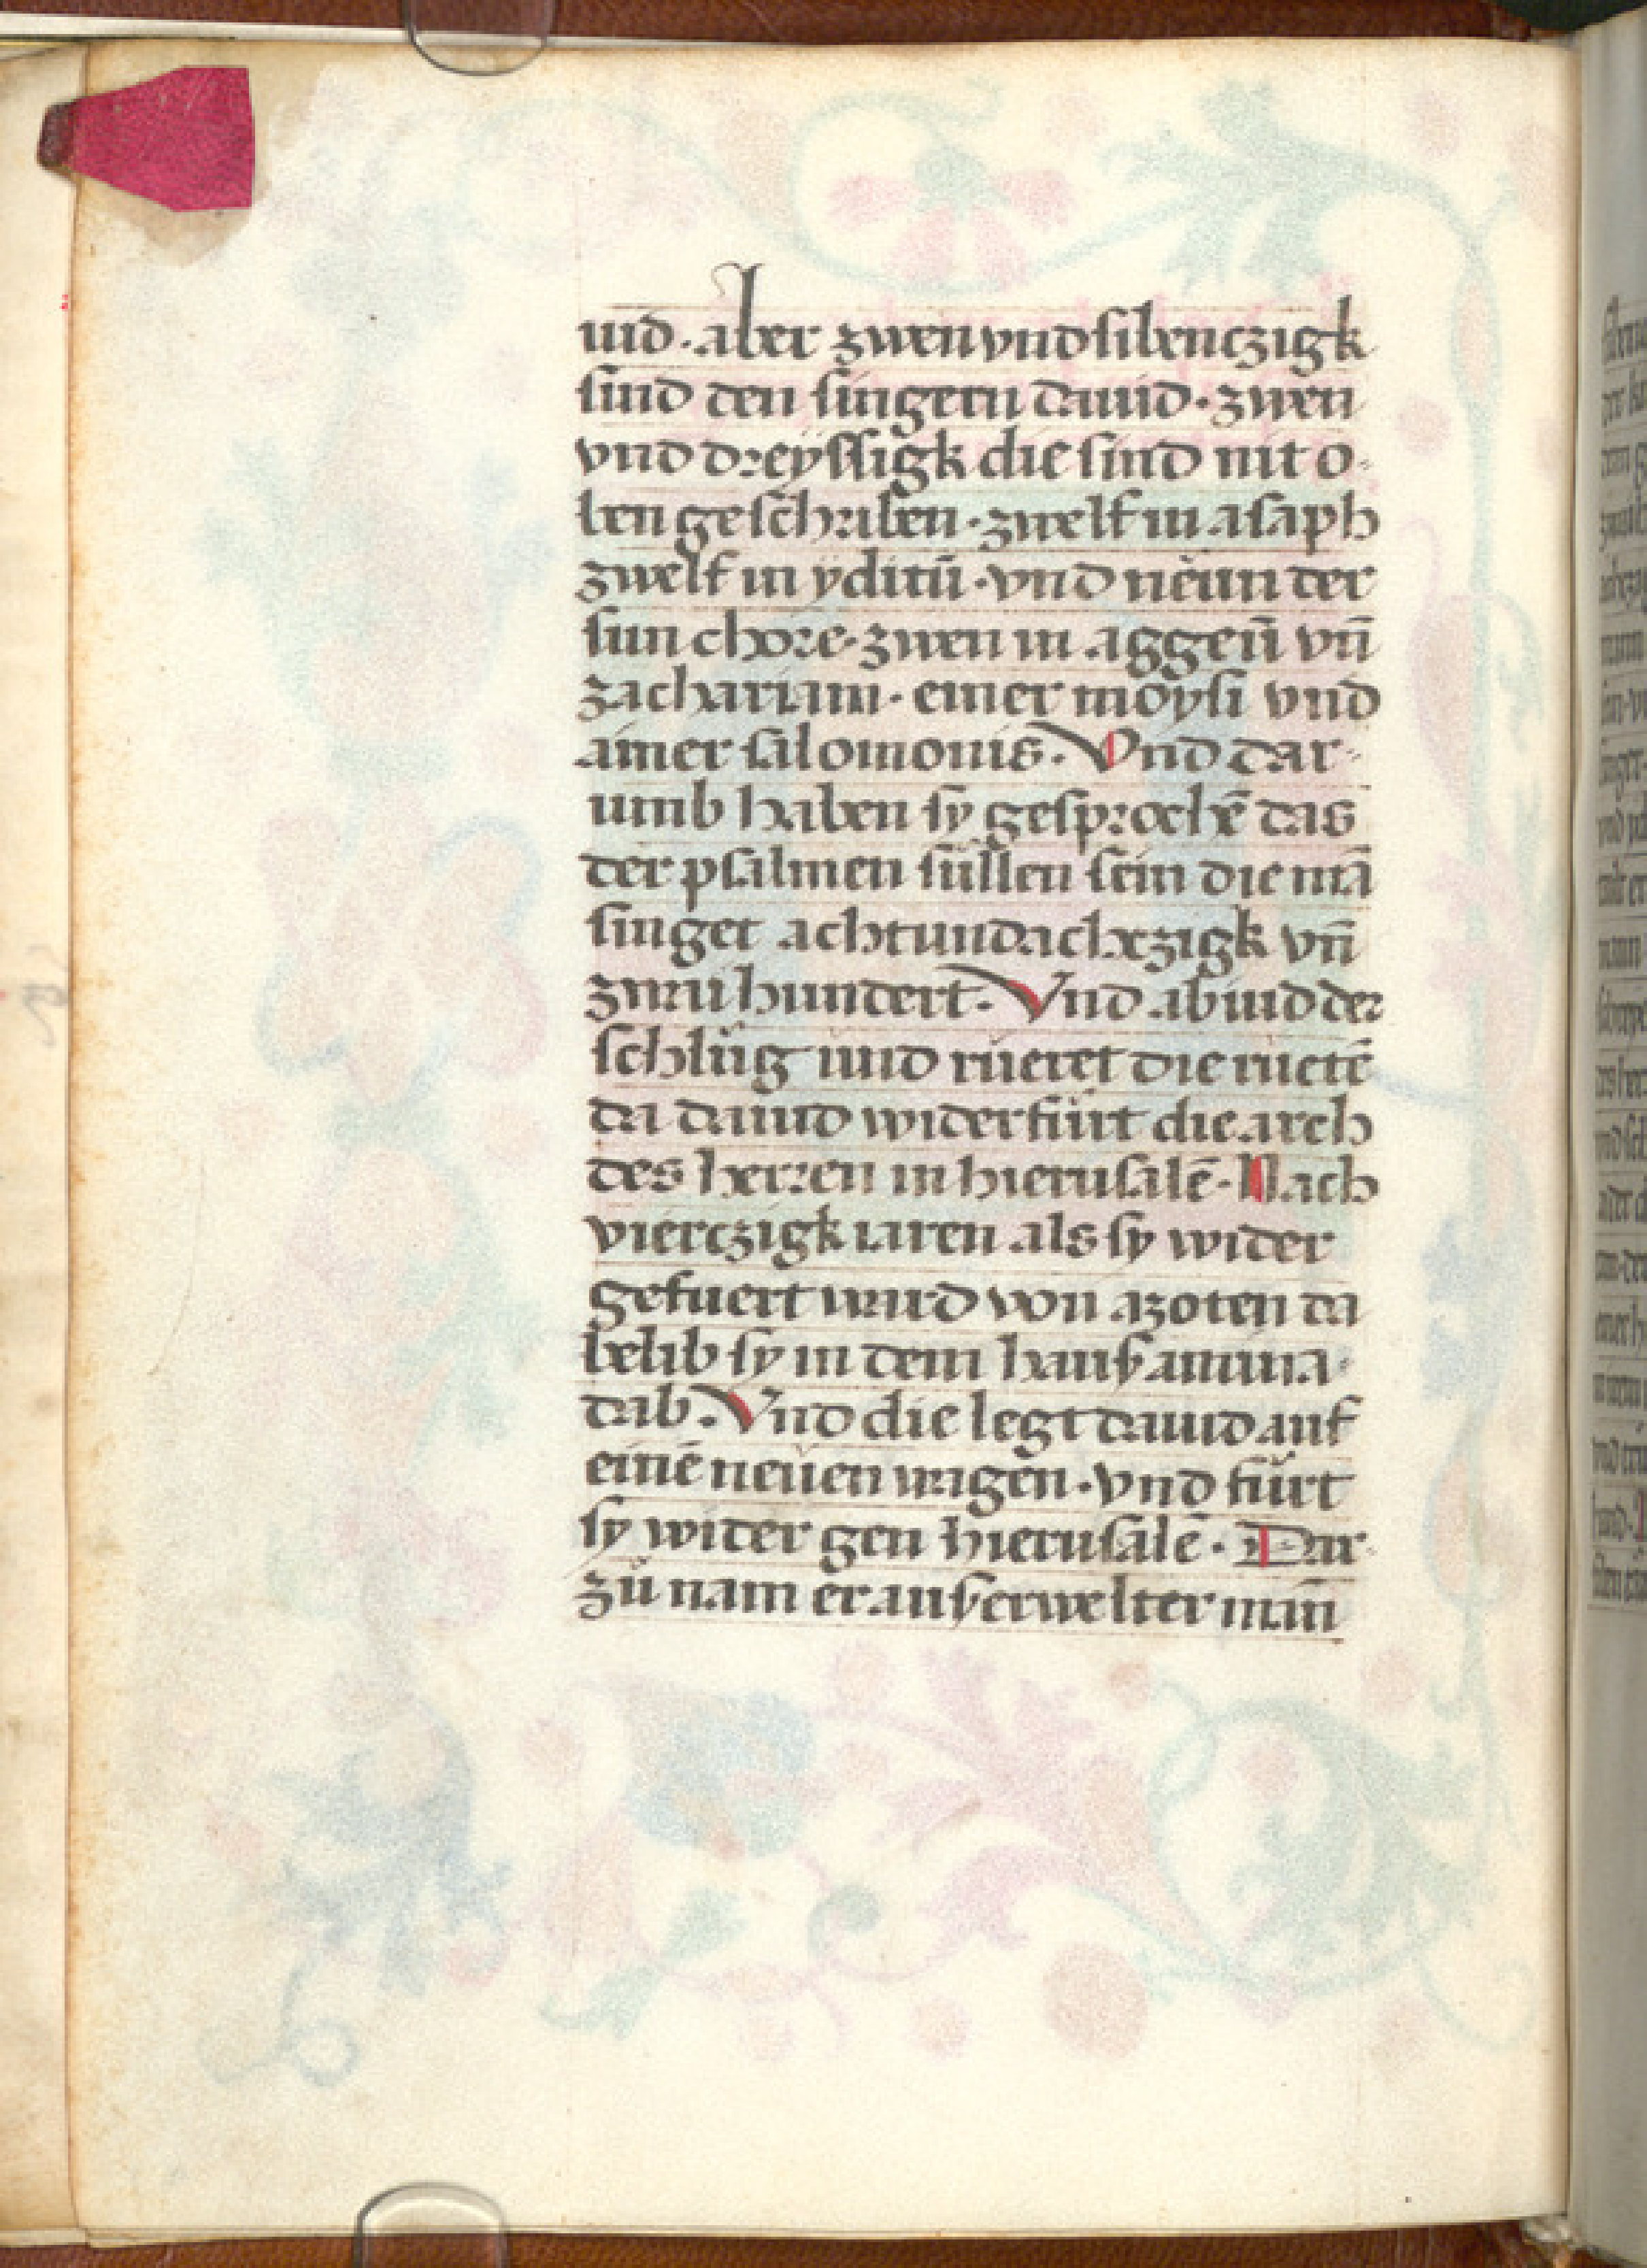 uid. aber zwen vnd sibenczigk
sind den singern dauid. zwen
vnd dreyssigk die sind nit o-
ben geschriben. zwelf in asaph
zwelf in yditū. vnd neun der
sun chore. zwen in aggeū vn̄
zachariam. einer moysi vnd
ainer salomonis. Vnd dar-
umb haben sy gesprochē das
der psalmen süllen sein die mā
singet achtundachczigk vn̄
zwaihundert. Vnd abiud der
schlůg uud rüeret die rietē
da dauid widerfürt die arch
des herren in hierusalē. Nach
vierczigk iaren als sy wider
gefuert ward von azoten da
belib sy in dem hauſz amina-
dab. Vnd die legt dauid auf
einē neuen wagen. vnd fürt
sy wider gen hierusalē. Dar-
zů nam er auſzerwelter man̄